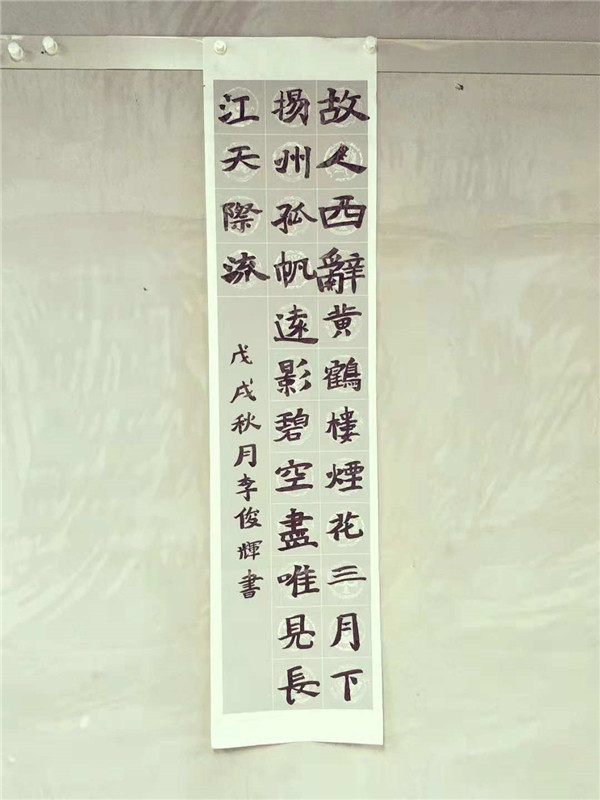 故人西辭黄鶴樓煙花三月下
揚州孤帆遠影碧空盡唯見長
江天際流
戊戌秋月李俊輝書